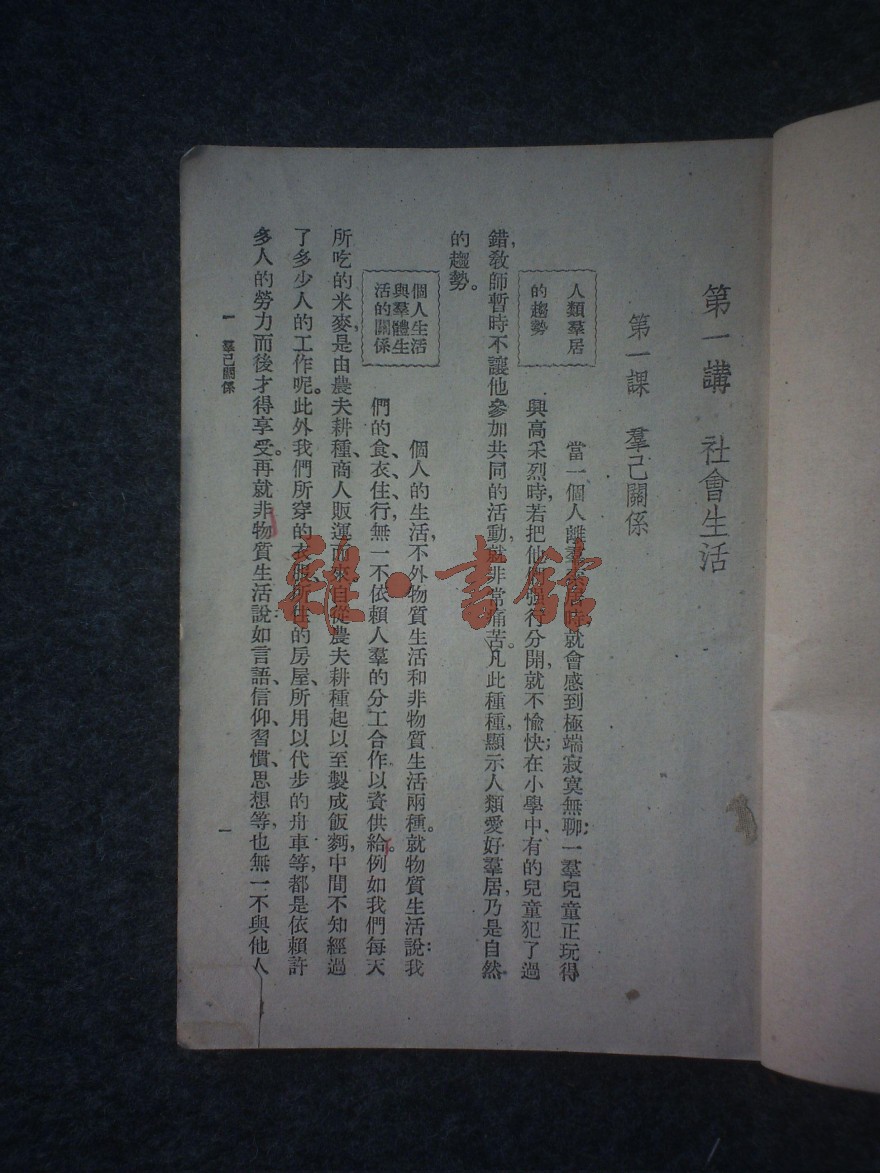 第一講　社會生活
第一課　羣己關係
人類羣居
的趨勢
當一個人離羣 居時,就會感到極端寂寞無聊;一羣兒童正玩得
興高采烈時,若把他們強行分開,就不愉快;在小學中、有的兒童犯了過
錯,敎師暫時不讓他參加共同的活動,就非常痛苦。凡此種種,顯示人類愛好羣居,乃是自然
的趨勢。
個人生活
與羣體生
活的關係
個人的生活,不外物質生活和非物質生活兩種。就物質生活說:我
們的食、衣、住、行,無一不依賴人羣的分工合作以資供給。例如我們每天
所吃的米麥,是由農夫耕種、商人販運而來。自從農夫耕種起以至製成飯麪,中間不知經過
了多少人的工作呢。此外我們所穿的衣服、所住的房屋、所用以代步的舟車等,都是依賴許
多人的勞力而後才得享受。再就非物質生活說:如言語、信仰、習慣、思想等,也無一不與他人
一　羣己關係
一
雜·書館